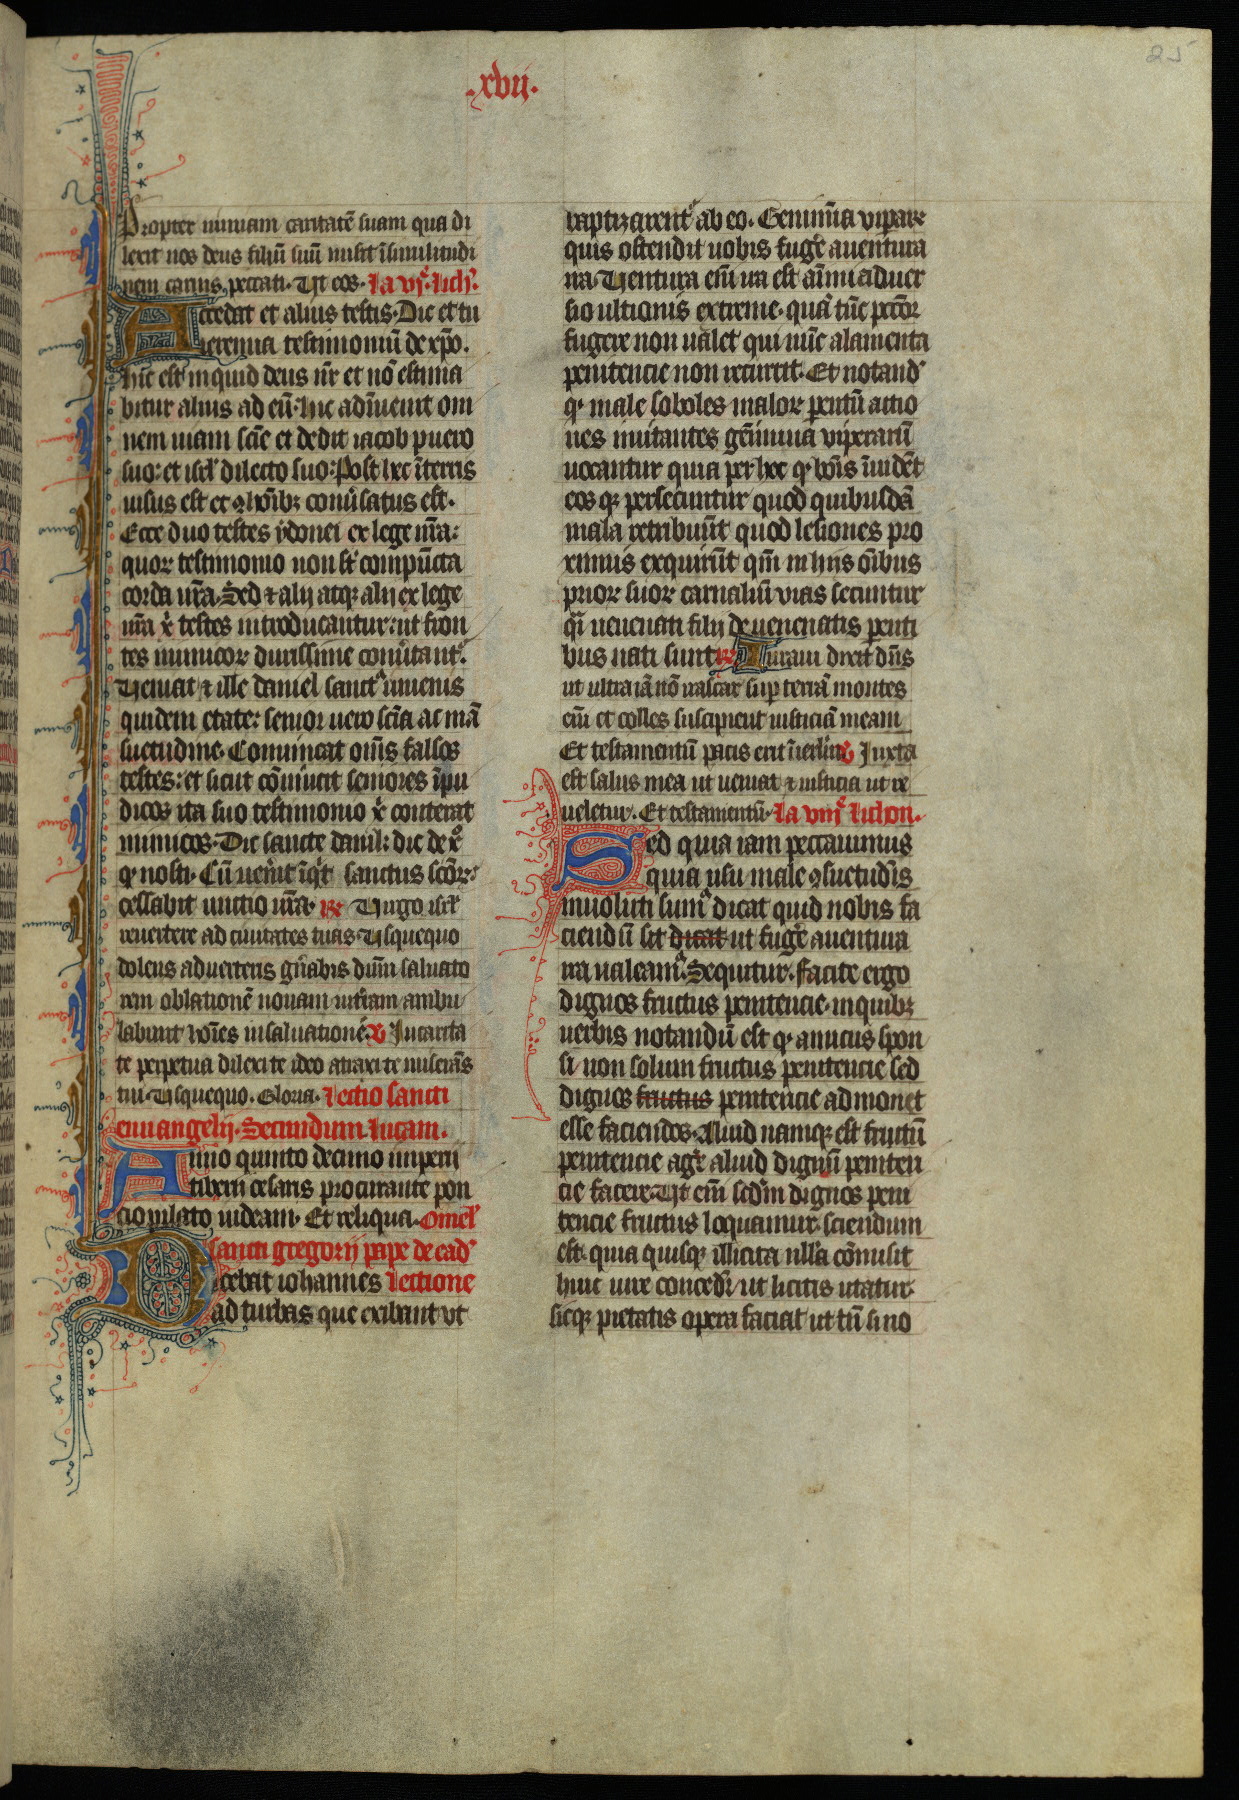 25
.xvij.
Propter nimiam caritatē suam qua di
lexit nos deus filiū suū misit ī similitudi
nem carnis peccati. Ut eos. La vij. Lich.
Accedat et alius testis. Dic et tu
ieremia testimoniū de xp̄o.
hic est inquid deus nr̄ et nō estima
bitur alius ad eū. hic adīuenit om
nem uiam scīe et dedit iacob puero
suo: et isrl̄ dilecto suo: Post hec ī terris
uisus est et ꝯ hoībꝫ conūsatus est.
Ecce duo testes ydonei ex lege nr̄a:
quoꝝ testimonio non st̄ compūcta
corda ur̄a. Sed ⁊ alij atqꝫ alij ex lege
nr̄a x̄i testes introducantur: ut fron
tes inimicoꝝ durissime conterant.
Ueniat ⁊ ille daniel sanctꝰ iuuenis
quidem etate: senior uero scīa ac mā
suetudine. Conuincat om̄s falsos
testes: et sicut cōuincit seniores īpu
dicos ita suo testimonio x̄i conterat
inimicos. Dic sancte daniel: dic de xo
qͥ nosti. Cū uen̄it īqͥt sanctus scōꝝ:
cessabit unctio ur̄a. ℞ Uirgo isrl̄
reuertere ad ciuitates tuas Usquequo
dolens aduerteris gn̄abis dn̄m saluato
rem oblationē nouam in t̄ram ambu
labunt hoīes in saluationē. ℣ In carita
te perpetua dilexi te ideo atraxi te miserās
tui. Usquequo. Gloria. Lectio sancti
euuangelij. Secundum Lucam.
Anno quinto decimo imperii
tiberii cesaris procurante pon
cio pilato iudeam. Et reliqua. Omel̄
sancti gregorij pape de ead
Dicebat iohannes lectione
ad turbas que exibant vt
baptizarent ab eo. Genimīa viparꝝ
quis ostendit uobis fugēe a uentura
ira. Uentura em̄ ira est aīmaduer
sio ultionis extreme. quā tūc pccōr
fugere non ualet qui nūc ad lamenta
penitencie non recurrit. Et notandꝰ
qͥ male soboles maloꝝ parentū actio
nes imitantes gēimina viperarū
uocantur quia per hoc qͥ bōis īuidēt
eos qꝫ persecuntur quod quibusdā
mala retribuūt quod lesiones pro
ximis exquirūt qm̄ in hiis oībus
prioꝝ suoꝝ carnaliū vias secuntur
qͣi uenenati filij de uenenatis paren
tibus nati sunt ℞ Iuraui dicit dn̄s
ut ultra iā nō irascar sup terrā montes
em̄ et colles suscipient iusticiā meam
Et testamentū pacis erit ī ierl̄m ℣ Iuxta
est salus mea ut ueniat ⁊ iusticia ut re
ueletur. Et testamentū. La viij. Lichon.
Sed quia iam peccauimus
quia usu male ꝯsuetudīs
inuoluti sumꝰ dicat quid nobis fa
ciendū sit dicat ut fugēe a uentura
ira ualeamꝰ. Sequitur. facite ergo
dignos fructus penitencie. in quibꝫ
uerbis notandū est qͥ amicus spon
si non solum fructus penitencie sed
dignos fructus penitencie admonet
esse faciendos. Aliud namqꝫ est fructū
penitencie agēe aliud dignū peniten
cie facere. Ut em̄ scdm̄ dignos peni
tencie fructus loquamur. sciendum
est. quia quisqꝫ illicita nulla cōmisit
huic iure concedit̄ ut licitis utatur
sicqꝫ pietatis opera faciat ut tn̄ si no